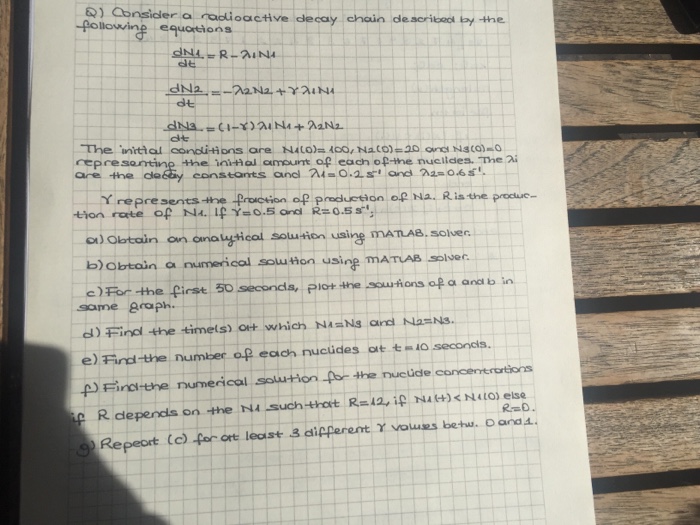 Q) Consider a radioactive decay chain described by the
following equations
dN1/dt = R-λ1N1
dN2/dt = -λ2N2 + γλ1N1
dN3/dt = (1-γ) λ1N1 + λ2N2
The initial conditions are N1(0)=100, N2(0)=20 and N3(0)=0
representing the initial amount of each of the nuclides. The λi
are the decay constants and λ1=0.2 s⁻¹ and λ2=0.6 s⁻¹.
γ represents the fraction of production of N2. R is the produc-
tion rate of N1. If γ=0.5 and R=0.5 s⁻¹;
a) Obtain an analytical solution using MATLAB. solver.
b) Obtain a numerical solution using MATLAB solver.
c) For the first 50 seconds, plot the soutions of a and b in
same graph.
d) Find the time(s) at which N1=N3 and N2=N3.
e) Find the number of each nuclides at t=10 seconds.
f) Find the numerical solution for the nuclide concentrations
if R depends on the N1 such that R=12, if N1(t)<N1(0) else
R=0.
g) Repeat (c) for at least 3 different γ values betw. 0 and 1.